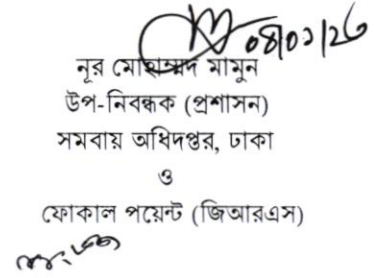 ০৪/০১/২৬
নূর মোহাম্মদ মামুন
উপ-নিবন্ধক (প্রশাসন)
সমবায় অধিদপ্তর, ঢাকা
ও
ফোকাল পয়েন্ট (জিআরএস)